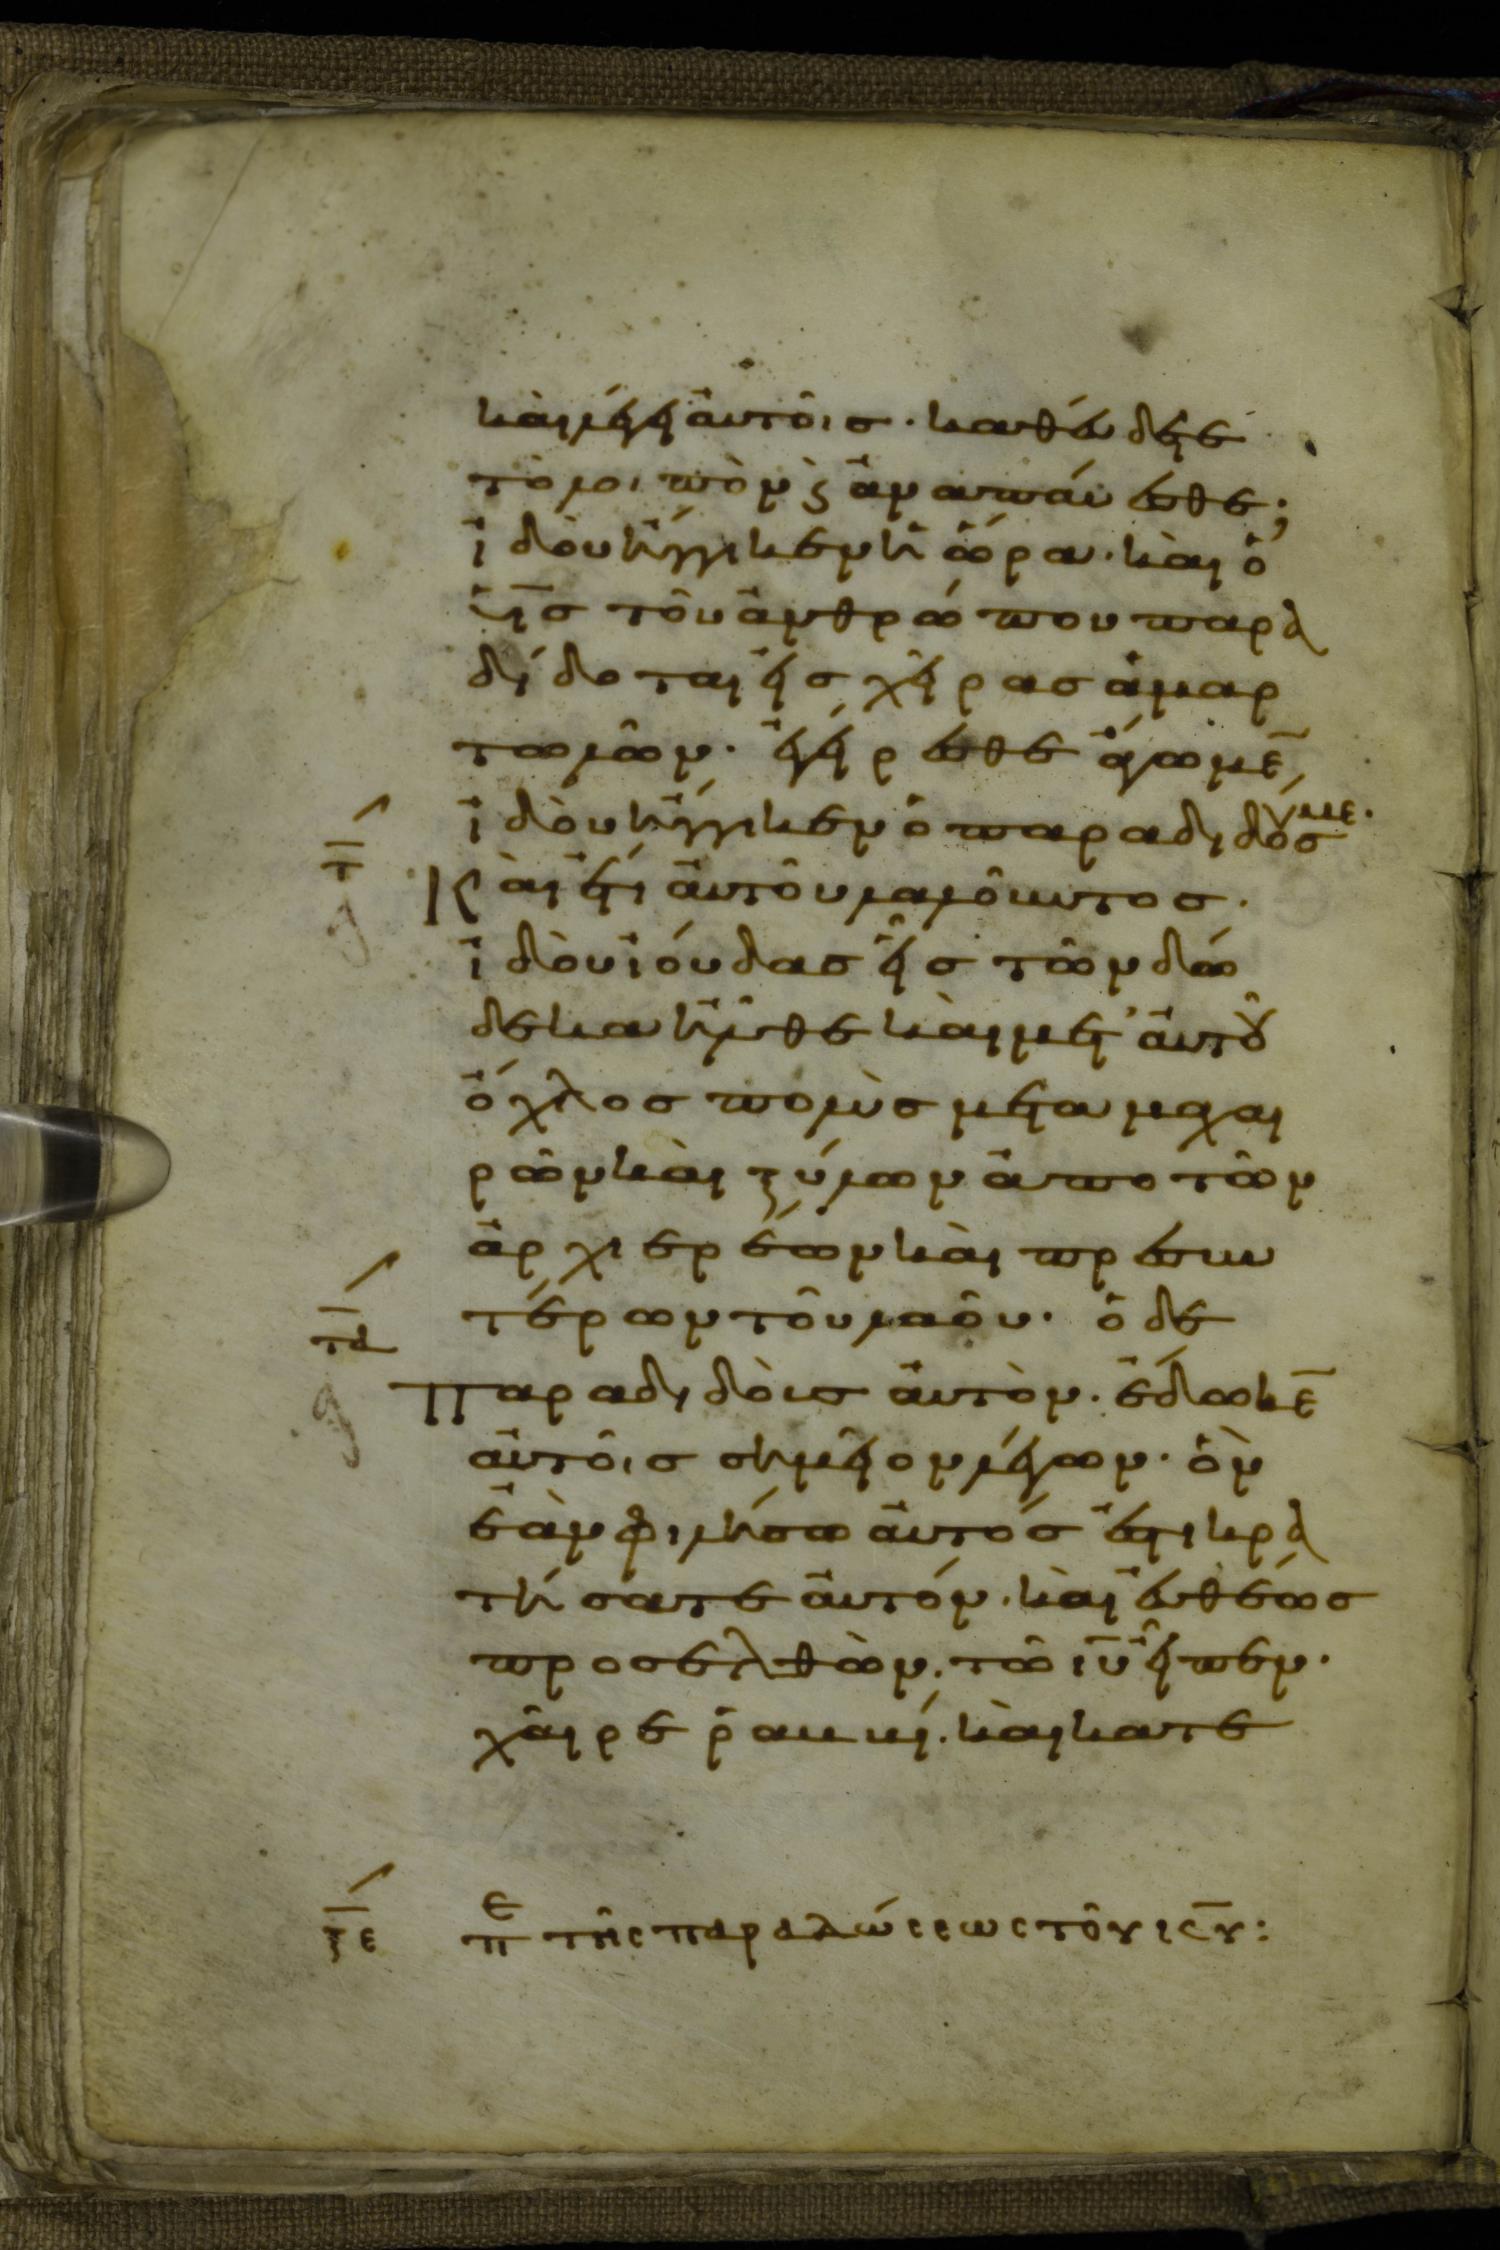 καὶ λέγει ἀυτοῖς · καθεύδετε
τὸ λοιπὸν ϛ ἀναπάυεσθε ;
ἰδοὺ ἤγγικεν ἡ ὥρα · καὶ ὁ
υι̅ς τοῦ ἀνθρώπου παρα
δίδοται εἰς χεῖρας ἁμαρ
τωλῶν · ἐγείρεσθε ἄγωμε̅
ἰδοὺ ἤγγικεν ὁ παραδιδούς με ·
τ̅ Καὶ ἔτι ἀυτοῦ λαλοῦντος ·
ἰδοὺ ἰούδας εἷς τῶν δώ
δεκα ἦλθε καὶ μετ' ἀυτοῦ
ὄχλος πολὺς μετα μαχαι
ρῶν καὶ ξύλων ἀπο τῶν
ἀρχιερέων καὶ πρεσβυ
τέρων τοῦ λαοῦ · ὁ δε
τ̅α̅ παραδιδοὺς ἀυτὸν · ἔδωκε̅
ἀυτοῖς σημεῖον λέγων · ὃν
ἐὰν φιλήσω ἀυτός ἐστι κρα
τήσατε ἀυτόν · καὶ ἐυθέως
προσελθὼν · τῶ ι̅υ̅ εἶπεν ·
χαῖρε ῥαββί · καὶ κατε
ξ̅ε̅ πε τῆς παραδώσεως τοῦ ι̅υ̅ :